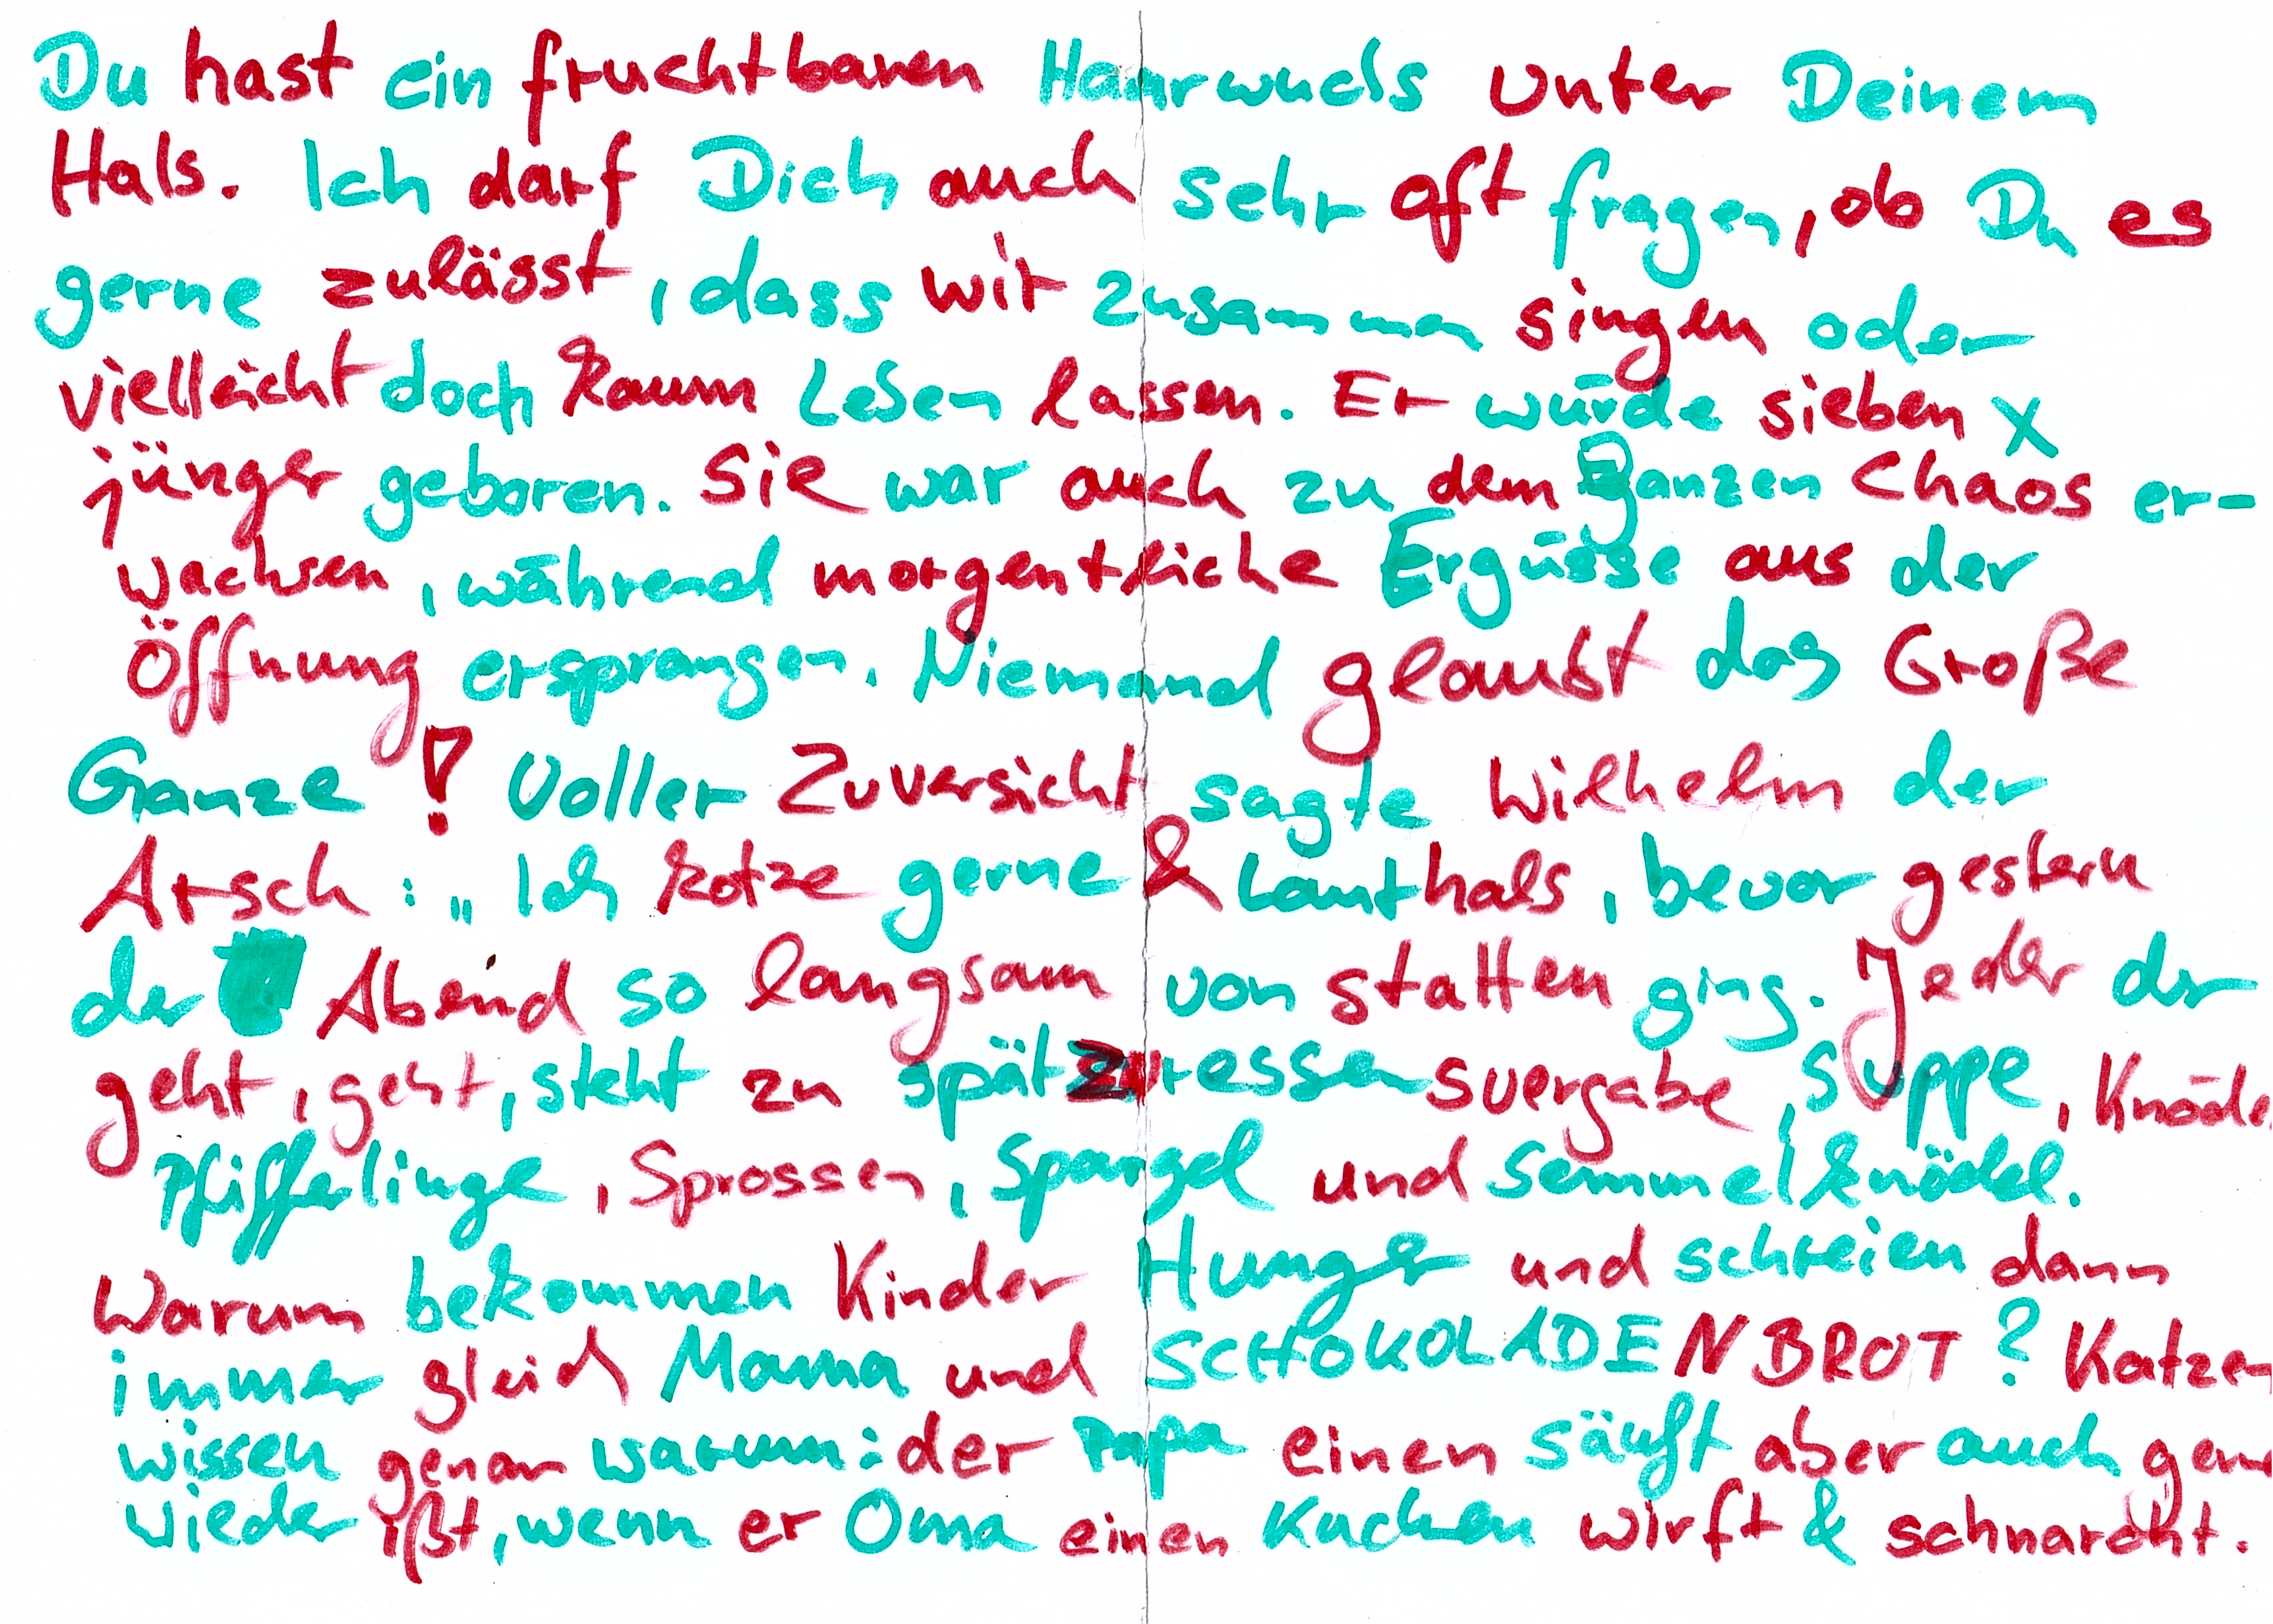 Du hast ein fruchtbaren Haarwuchs unter Deinem
Hals. Ich darf Dich auch sehr oft fragen, ob Du es
gerne zulässt, dass wir zusammen singen oder
vielleicht doch kaum Lesen lassen. Er würde sieben x
jünger geboren. Sie war auch zu dem ganzen Chaos er-
wachsen, während morgentliche Ergüsse aus der
Öffnung ersprangen. Niemand glaubt das Große
Ganze! Voller Zuversicht sagte Wilhelm der
Arsch: „Ich kotze gerne & Lauthals, bevor gestern
der Abend so langsam von statten ging. Jeder der
geht, geht, steht zu spät zur essensvergabe, Suppe, Knödel
Pfifferlinge, Sprossen, Spargel und Semmelknödel.
Warum bekommen Kinder Hunger und schreien dann
immer gleich Mama und SCHOKOLADENBROT? Katzen
wissen genau warum: der Papa einen säuft aber auch gerne
wieder ißt, wenn er Oma einen Kuchen wirft & schnarcht.